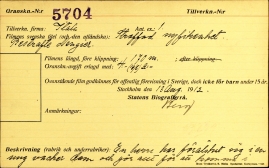 Gransk.-Nr 5704 Tillverkn.-Nr
Tillverkn. firma: Itala
Filmens svenska titel (och den utländska): Straffad nyfikenhet
Filmens längd, före klippning: 170 m. efter klippning:
Gransknings-avgift erlagd med:
Ovanstående film godkännes för offentlig förevisning i Sverige, dock icke för barn under 15 år.
Stockholm den 13 Aug. 1912.
Statens Biografbyrå.
Anmärkningar:
Beskrivning (rubrik och underrubriker): En herre har förälskat sig i en
ung vacker dam och för att få komma i